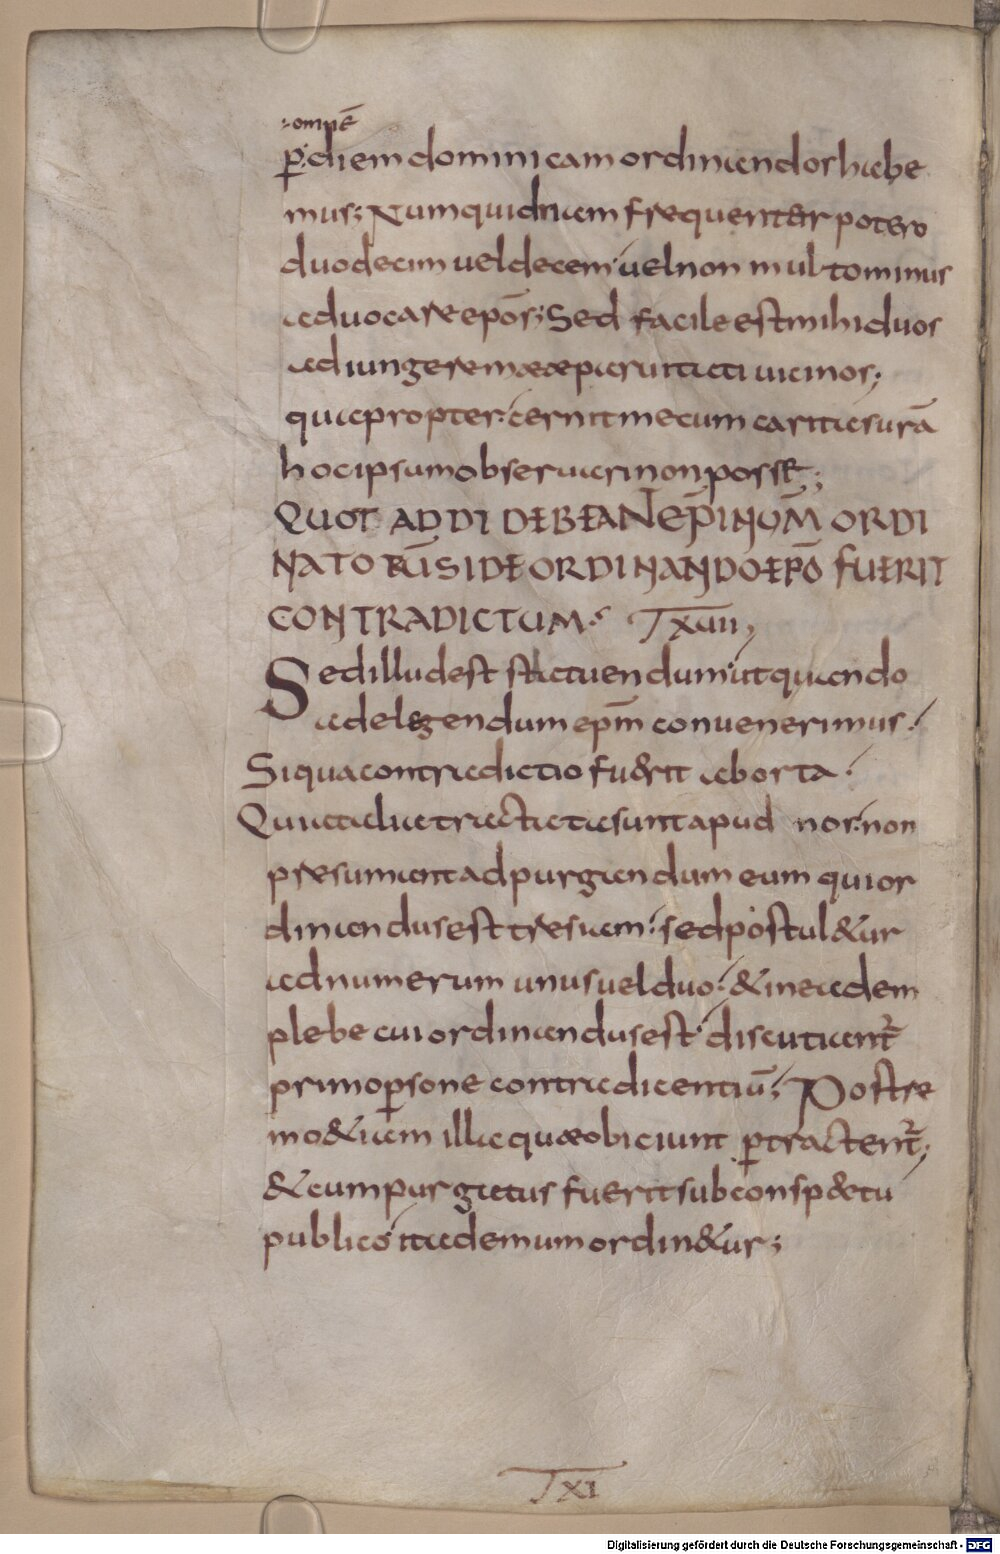 omnē
ꝑ diem dominicam ordinandos habe
mus; Numquidnam frequenter potero
duodecim uel decem uel non multominus
aduocare epos; Sed facile est mihi duos
adiungere meæ paruitati uicinos;
quapropter cernit mecum caritas urā
hoc ipsum obseruari non posse;
QUOT ADDI DEBEANT EPI NUM ORDI
NATORŪ SI DE ORDINANDO EPO FUERIT
CONTRADICTUM. T XVII,
Sed illud est statuendum ut quando
ad elegendum epm conuenerimus.
Si qua contradictio fuerit aborta.
Quia talia tractata sunt apud nos. non
presumant ad purgandum eum qui or
dinandus est tres iam. sed postul&ur
ad numerum unus uel duo. & in eadem
plebe cui ordinandus est discutiant̄
primo ꝑsone contradicentiū; Postre
mo &iam illa quæ obiciunt ꝑtractent̄;
& cum purgatus fuerit sub consp&tu
publico ita demum ordin&ur;
T XI
Digitalisierung gefördert durch die Deutsche Forschungsgemeinschaft - DFG